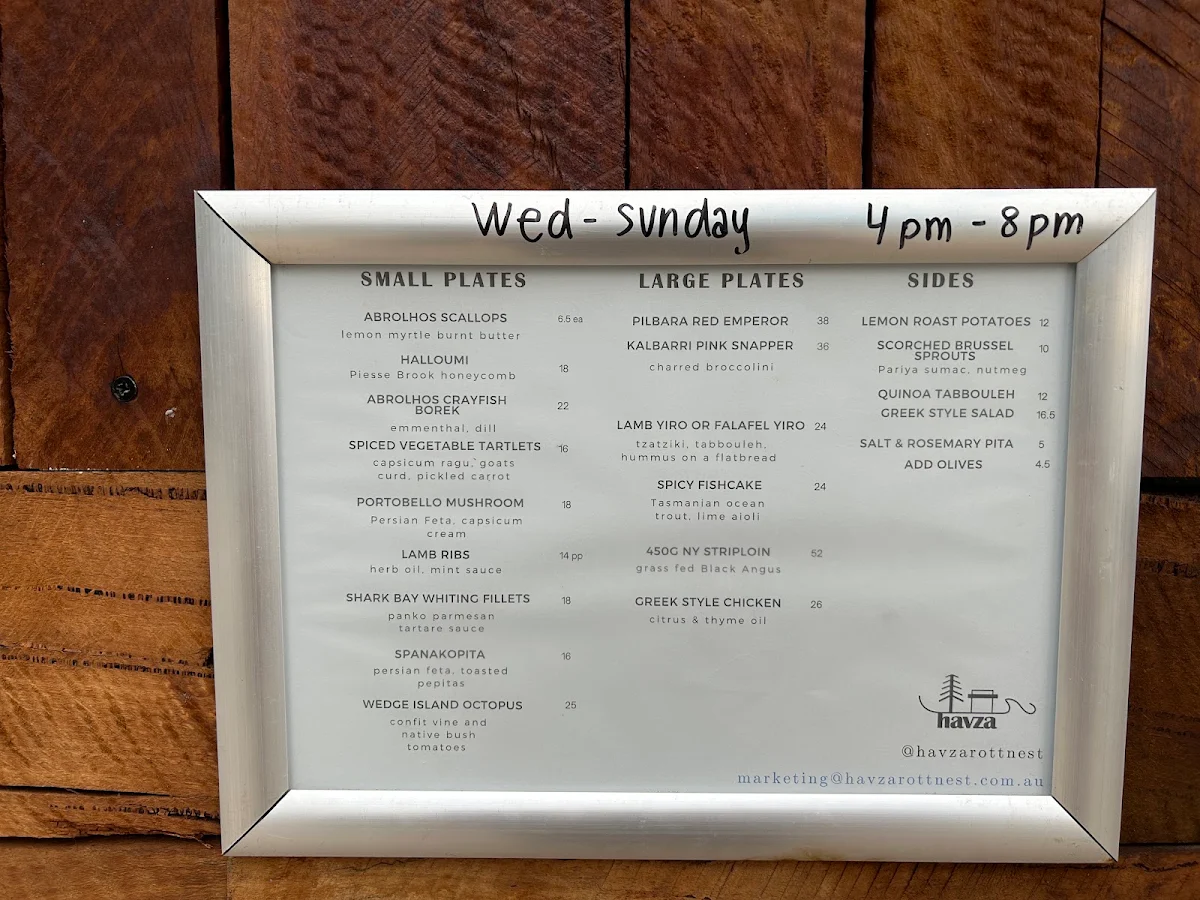 Wed - Sunday 4pm - 8pm
SMALL PLATES
ABROLHOS SCALLOPS 6.5 ea
lemon myrtle burnt butter
HALLOUMI 18
Piesse Brook honeycomb
ABROLHOS CRAYFISH
BOREK 22
emmenthal, dill
SPICED VEGETABLE TARTLETS 16
capsicum ragu, goats
curd, pickled carrot
PORTOBELLO MUSHROOM 18
Persian Feta, capsicum
cream
LAMB RIBS 14 pp
herb oil, mint sauce
SHARK BAY WHITING FILLETS 18
panko parmesan
tartare sauce
SPANAKOPITA 16
persian feta, toasted
pepitas
WEDGE ISLAND OCTOPUS 25
confit vine and
native bush
tomatoes
LARGE PLATES
PILBARA RED EMPEROR 38
KALBARRI PINK SNAPPER 36
charred broccolini
LAMB YIRO OR FALAFEL YIRO 24
tzatziki, tabbouleh,
hummus on a flatbread
SPICY FISHCAKE 24
Tasmanian ocean
trout, lime aioli
450G NY STRIPLOIN 52
grass fed Black Angus
GREEK STYLE CHICKEN 26
citrus & thyme oil
SIDES
LEMON ROAST POTATOES 12
SCORCHED BRUSSEL
SPROUTS 10
Pariya sumac, nutmeg
QUINOA TABBOULEH 12
GREEK STYLE SALAD 16.5
SALT & ROSEMARY PITA 5
ADD OLIVES 4.5
havza
@havzarottnest
marketing@havzarottnest.com.au